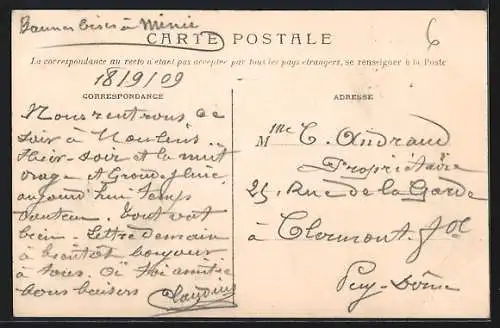 Bonnes bises à Minie
CARTE POSTALE
La correspondance au recto n'étant pas acceptée par tous les pays étrangers, se renseigner à la Poste
6
18/9/09
CORRESPONDANCE
Nous rentrons ce
soir à Moulins.
Hier soir et la nuit
orage et grande pluie
aujourd'hui temps
Tout vat
bien. Lettre demain
à bientôt bonjour
à tous. amitié
bons baisers
Claudius
ADRESSE
Mme C. Andraud
Propriétaire
25, Rue de la Garde
à Clermont-fd
Puy-Dôme